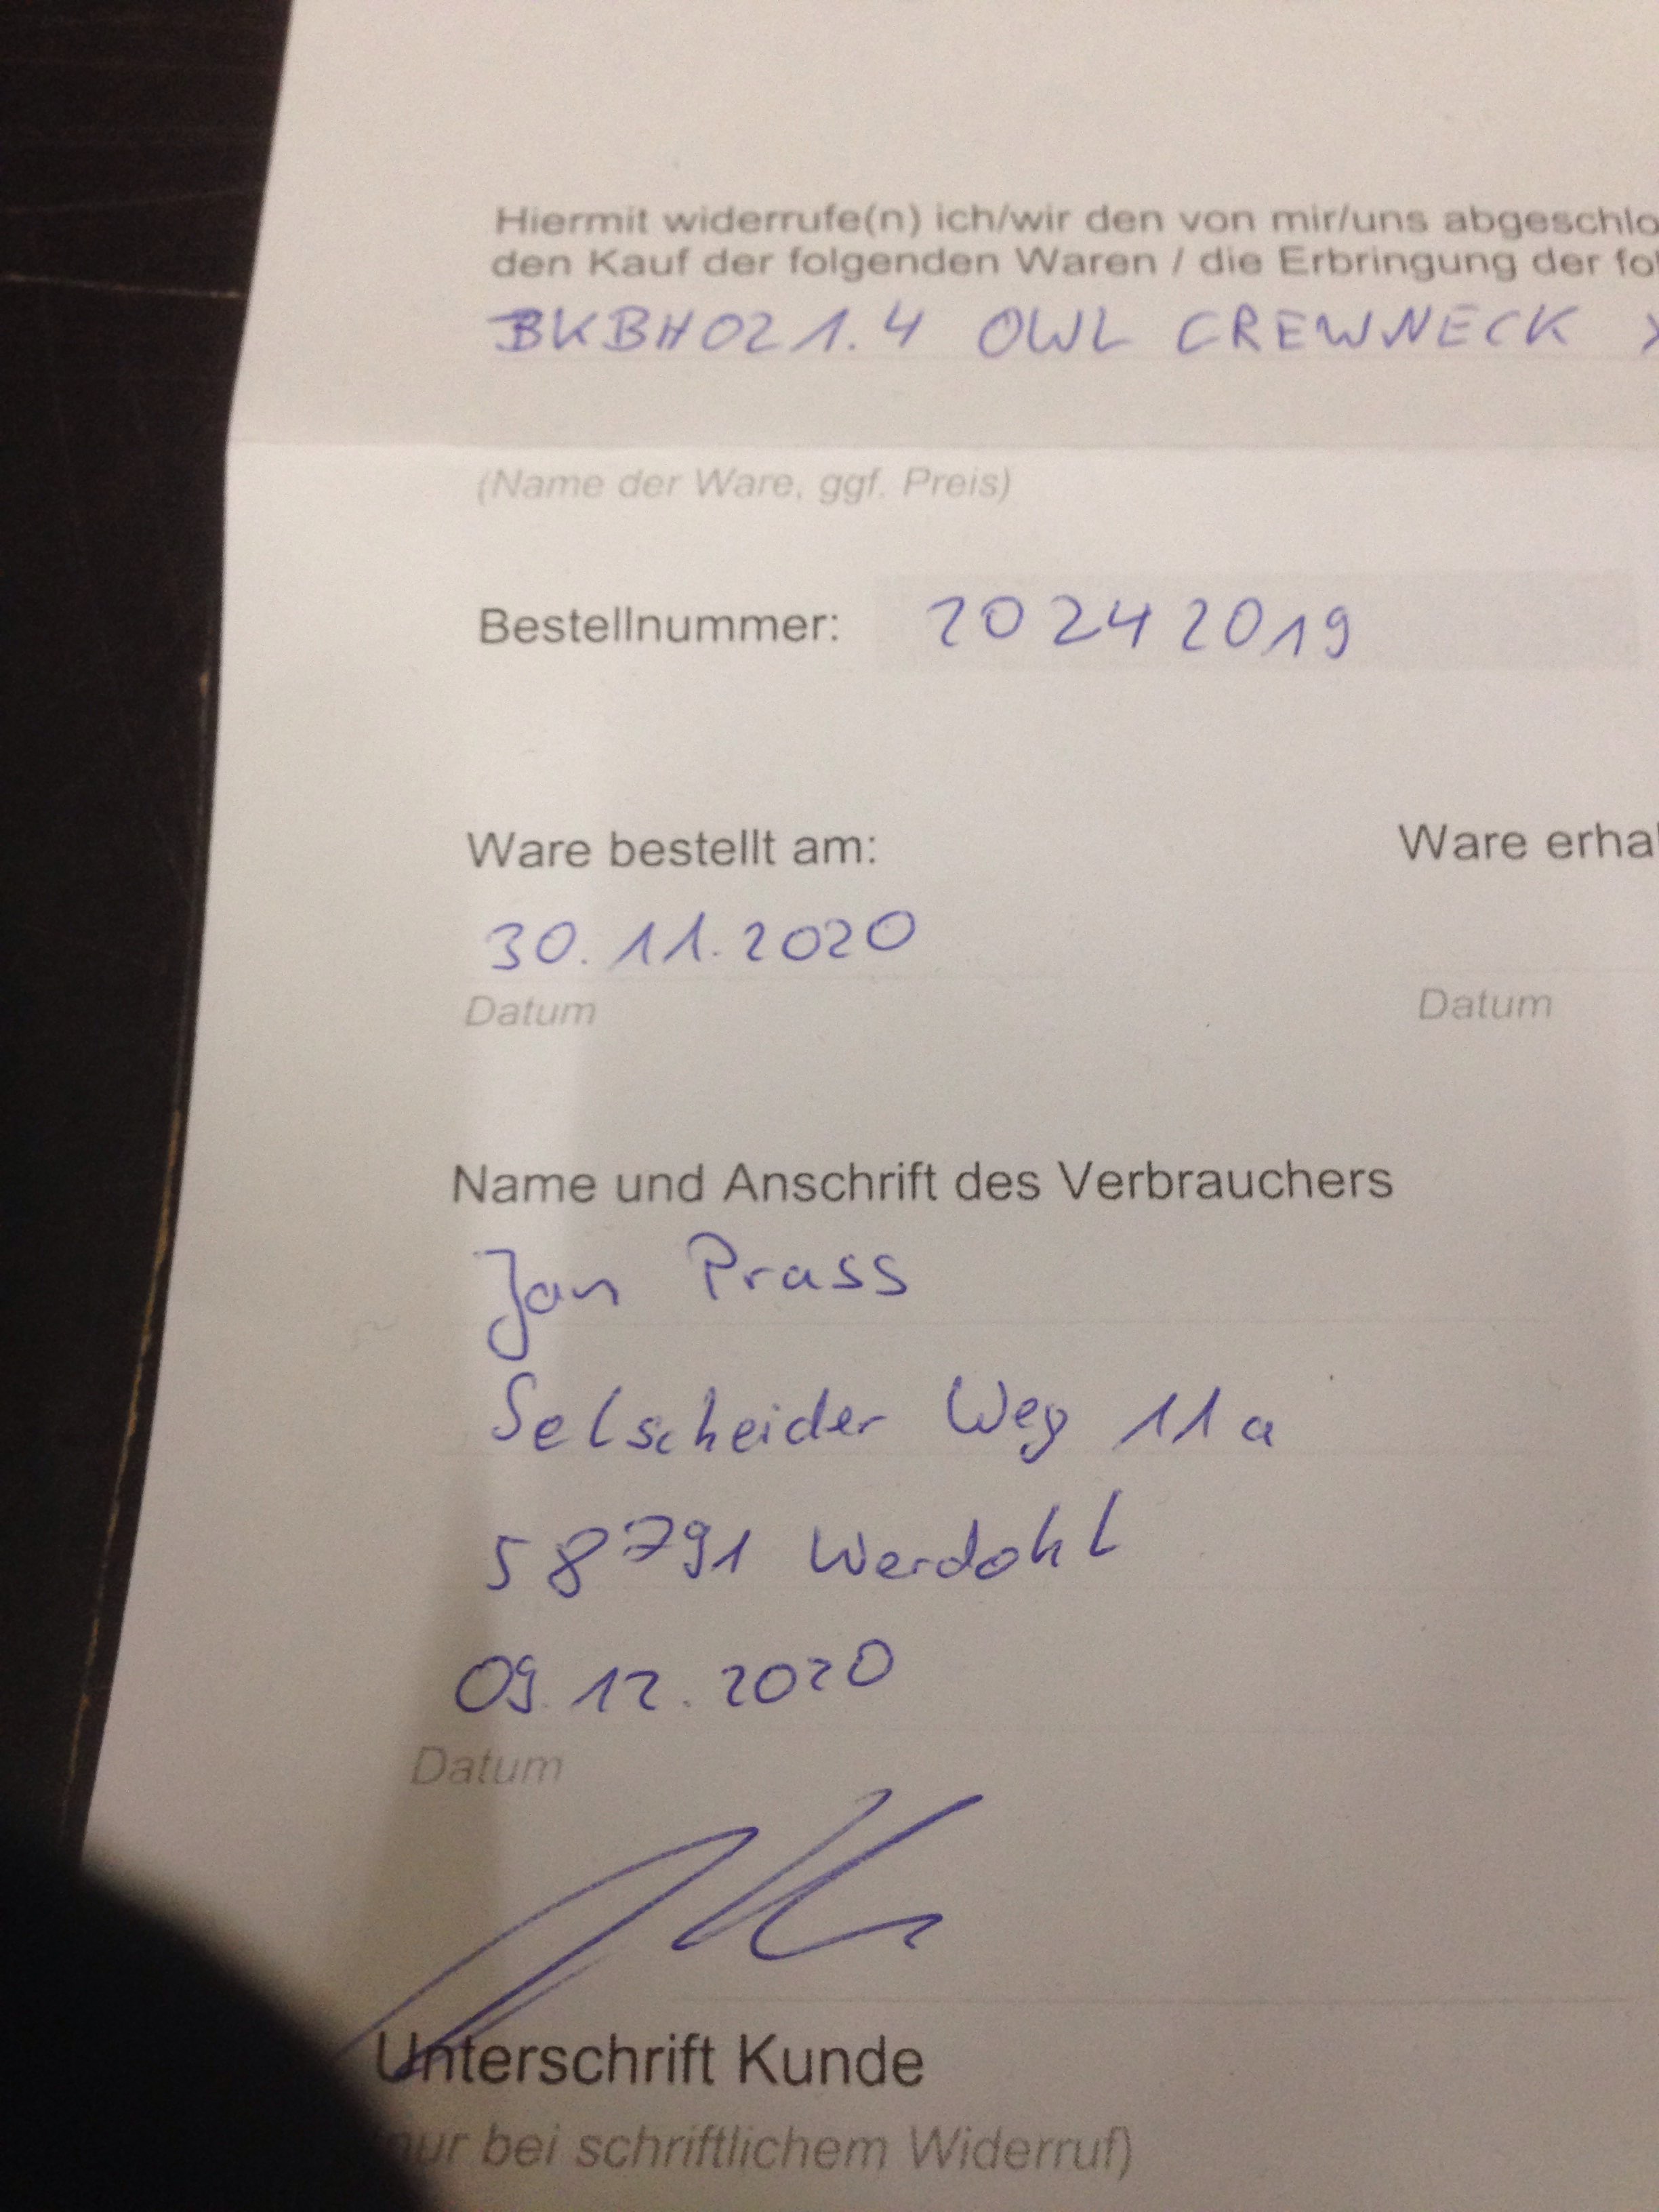 Hiermit widerrufe(n) ich/wir den von mir/uns abgeschlo
den Kauf der folgenden Waren / die Erbringung der fol
BKBH021.4 OWL CREWNECK
(Name der Ware, ggf. Preis)
Bestellnummer: 20242019
Ware bestellt am: Ware erhal
30.11.2020
Datum Datum
Name und Anschrift des Verbrauchers
Jan Prass
Selscheider Weg 11a
58791 Werdohl
09.12.2020
Datum
Unterschrift Kunde
nur bei schriftlichem Widerruf)